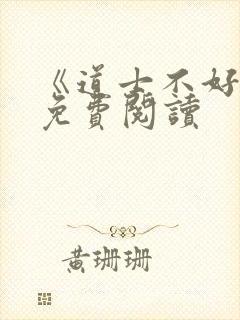 《道士不好
免費閱讀
黃珊珊